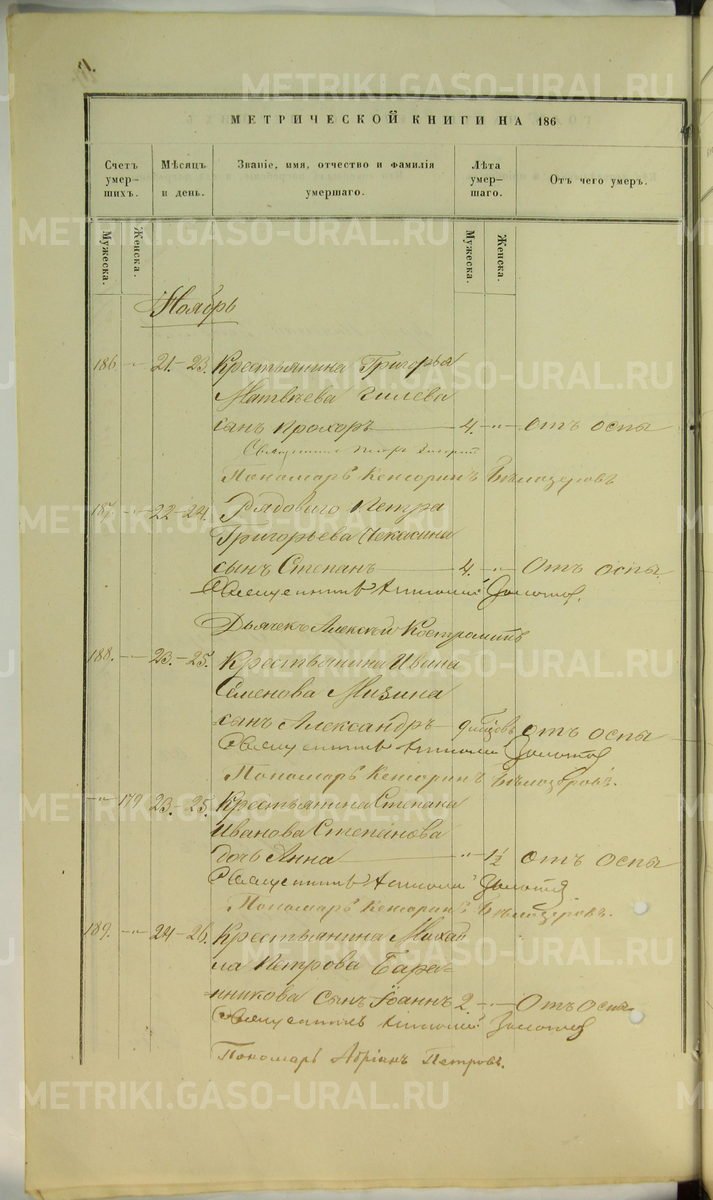 METRIKI.GASO-URAL.RU
МЕТРИЧЕСКОЙ КНИГИ НА 186
Счетъ умер-шихъ.
Мѣсяцъ и день.
Званіе, имя, отчество и фамилія умершаго.
Лѣта умер-шаго.
Отъ чего умеръ.
Мужеска. Женска. Мужеска. Женска.
Ноябрь
186. -"- 21.-23. Крестьянина Григорья
Матвѣева Гилева
сынъ Прохоръ 4. -"- отъ оспы
Священникъ Петръ
Пономарь Кенсоринъ Бѣлозеровъ
187. -"- 22-24. Рядового Петра
Григорьева Чекасина
сынъ Степанъ 4. -"- Отъ оспы.
Священникъ Антоній Золотов.
Дьячекъ Алексѣй Костромитъ
188. -"- 23.-25. Крестьянина Ивана
Семенова Мизина
сынъ Александръ 9 мѣсцовъ отъ оспы
Священникъ Антоній Золотов
Пономарь Кенсоринъ Бѣлозеровъ.
-"- 179. 23.-25. Крестьянина Степана
Иванова Степанова
дочь Анна -"- 1½ отъ оспы
Священникъ Антоній Золотов
Пономарь Кенсоринъ Бѣлозеровъ.
189. -"- 24-26. Крестьянина Михаи
ла Петрова Бара-
нникова сынъ Іоаннъ 2. -"- Отъ Оспы
Священникъ Антоній Золотов
Пономарь Адріанъ Петровъ.